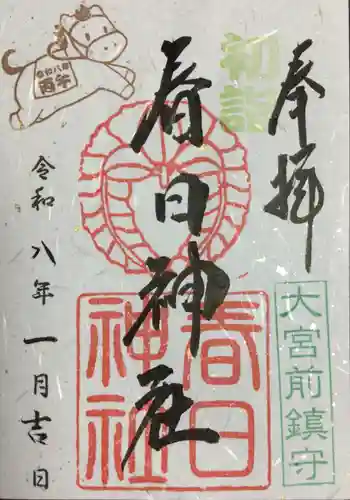 奉拝
初詣
春日神社
春日
神社
大宮前鎮守
令和八年一月吉日
令和八年
丙午